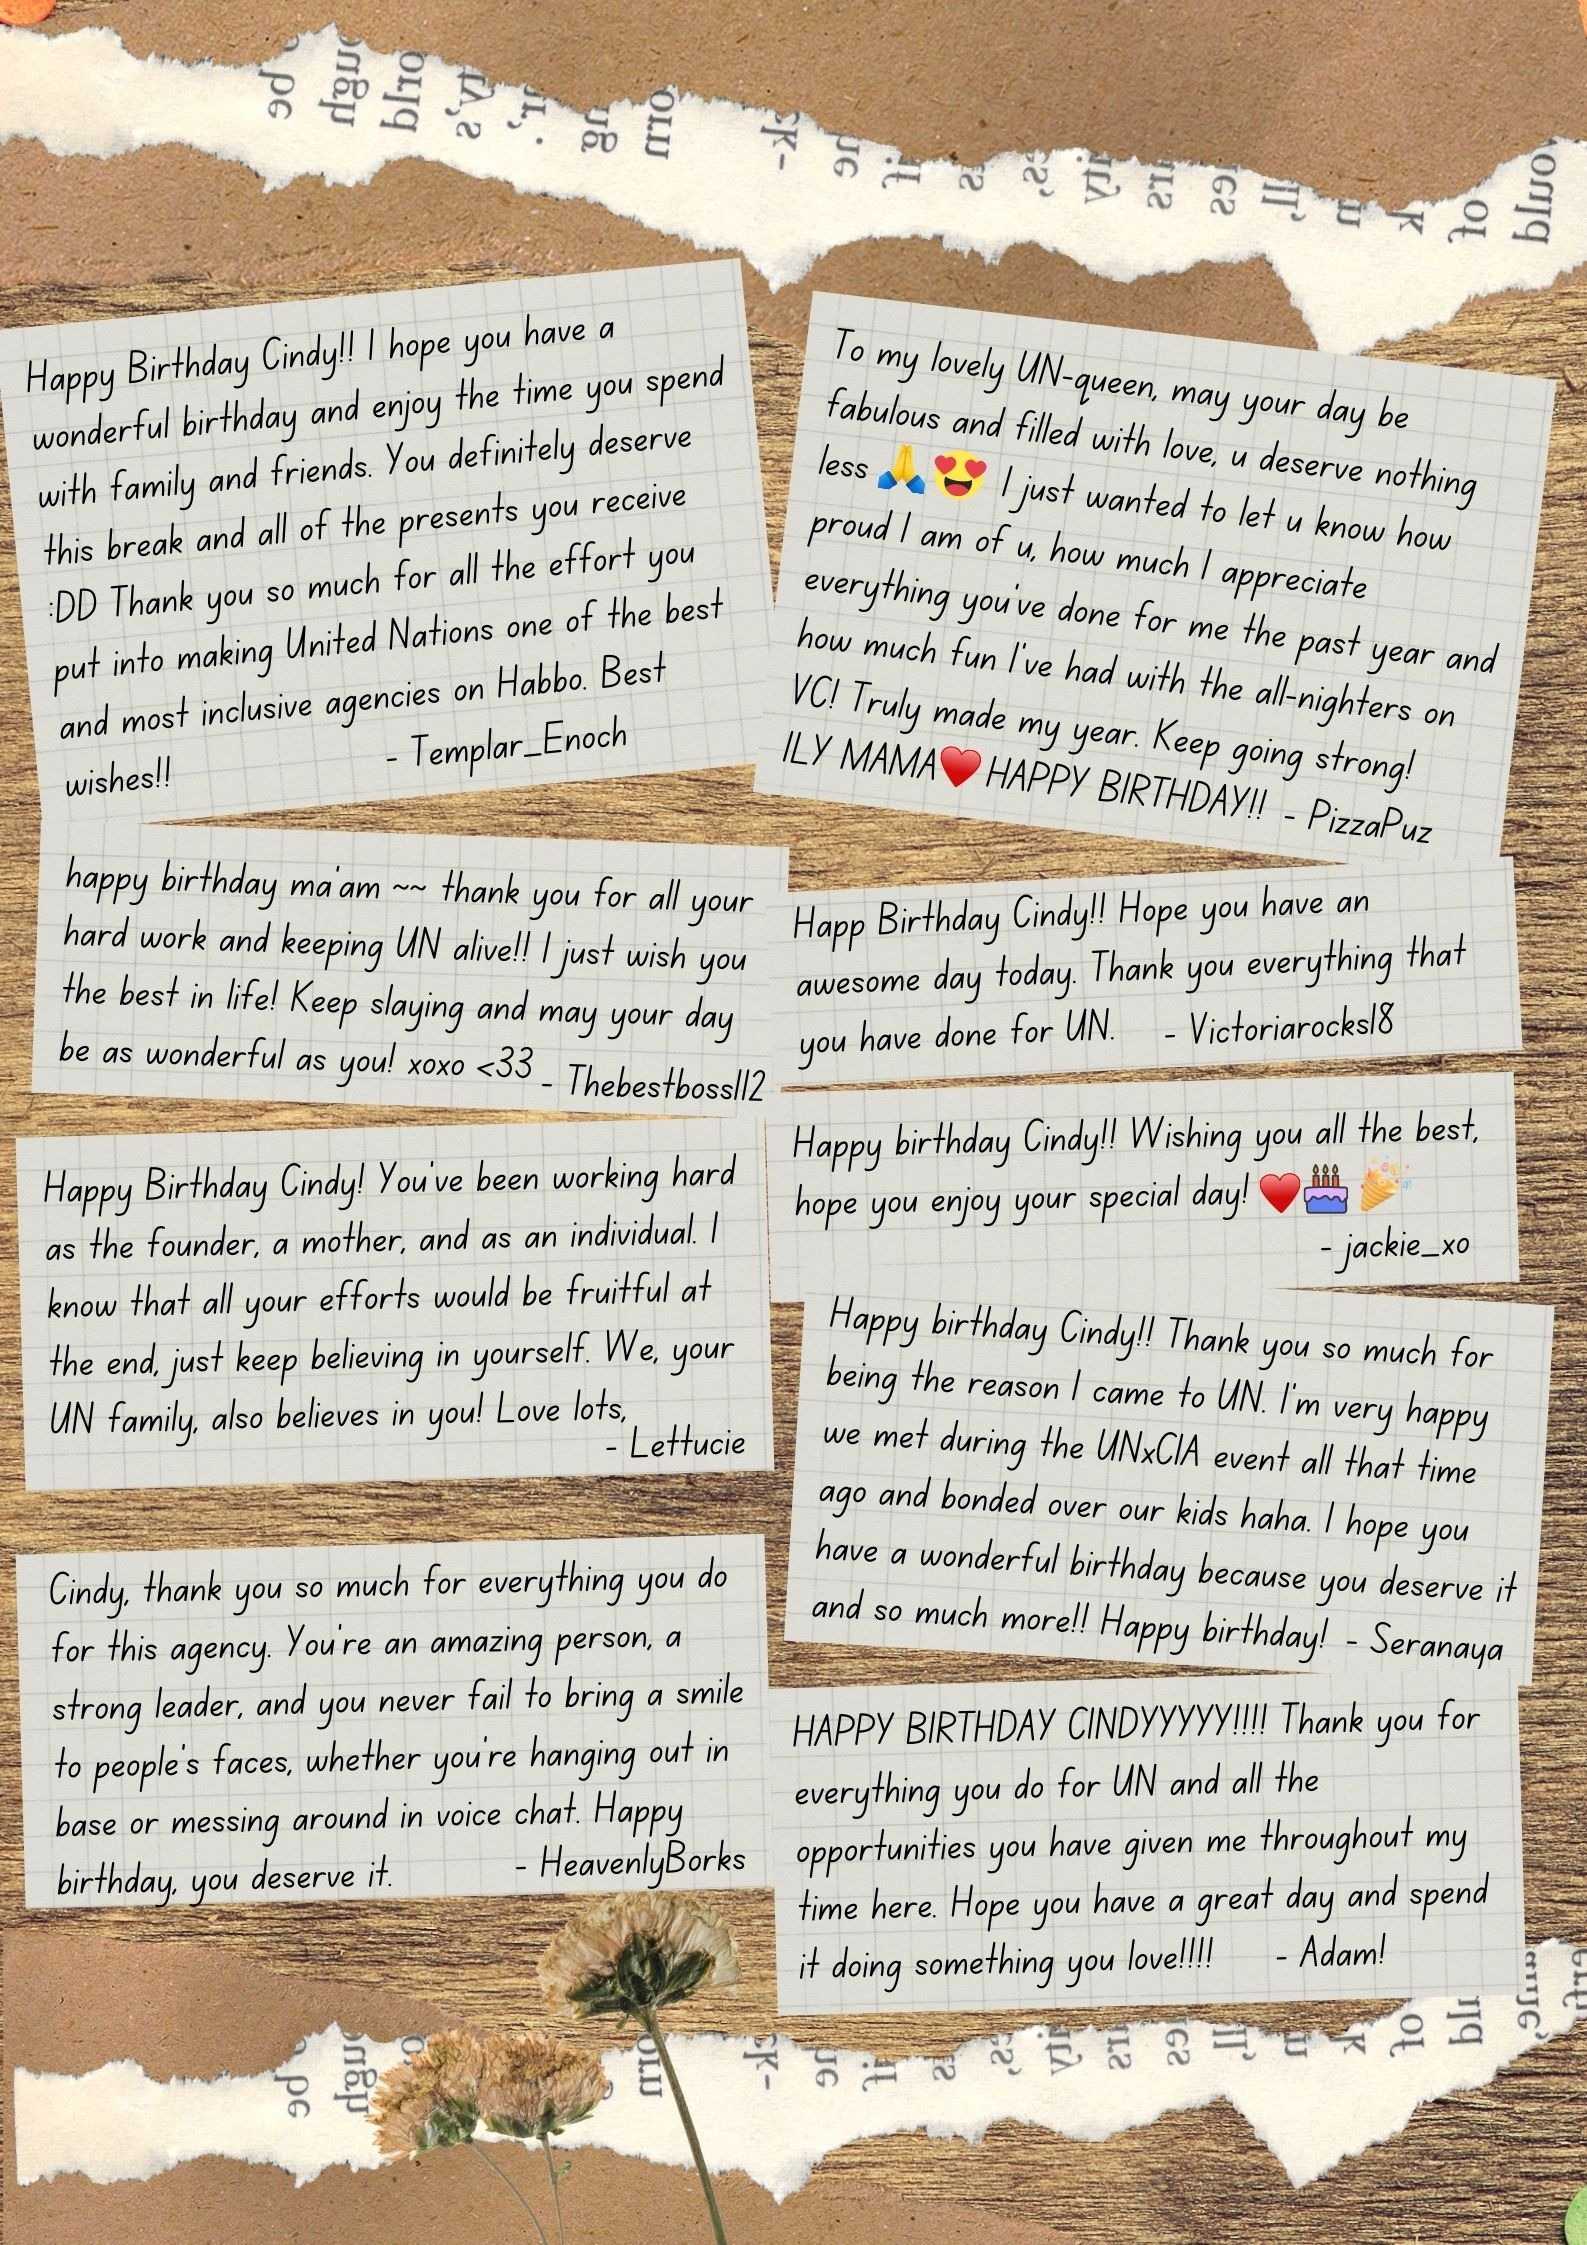 Happy Birthday Cindy!! I hope you have a
wonderful birthday and enjoy the time you spend
with family and friends. You definitely deserve
this break and all of the presents you receive
:DD Thank you so much for all the effort you
put into making United Nations one of the best
and most inclusive agencies on Habbo. Best
wishes!!
- Templar_Enoch
To my lovely UN-queen, may your day be
fabulous and filled with love, u deserve nothing
less 🙏😍 I just wanted to let u know how
proud I am of u, how much I appreciate
everything you've done for me the past year and
how much fun I've had with the all-nighters on
VC! Truly made my year. Keep going strong!
ILY MAMA❤️HAPPY BIRTHDAY!! - PizzaPuz
happy birthday ma'am ~~ thank you for all your
hard work and keeping UN alive!! I just wish you
the best in life! Keep slaying and may your day
be as wonderful as you! xoxo <33 - Thebestboss112
Happ Birthday Cindy!! Hope you have an
awesome day today. Thank you everything that
you have done for UN. - Victoriarocks18
Happy birthday Cindy!! Wishing you all the best,
hope you enjoy your special day! ❤️🎂🎉
- jackie_xo
Happy Birthday Cindy! You've been working hard
as the founder, a mother, and as an individual. I
know that all your efforts would be fruitful at
the end, just keep believing in yourself. We, your
UN family, also believes in you! Love lots,
- Lettucie
Happy birthday Cindy!! Thank you so much for
being the reason I came to UN. I'm very happy
we met during the UNxCIA event all that time
ago and bonded over our kids haha. I hope you
have a wonderful birthday because you deserve it
and so much more!! Happy birthday! - Seranaya
Cindy, thank you so much for everything you do
for this agency. You're an amazing person, a
strong leader, and you never fail to bring a smile
to people's faces, whether you're hanging out in
base or messing around in voice chat. Happy
birthday, you deserve it. - HeavenlyBorks
HAPPY BIRTHDAY CINDYYYYY!!!! Thank you for
everything you do for UN and all the
opportunities you have given me throughout my
time here. Hope you have a great day and spend
it doing something you love!!!! - Adam!